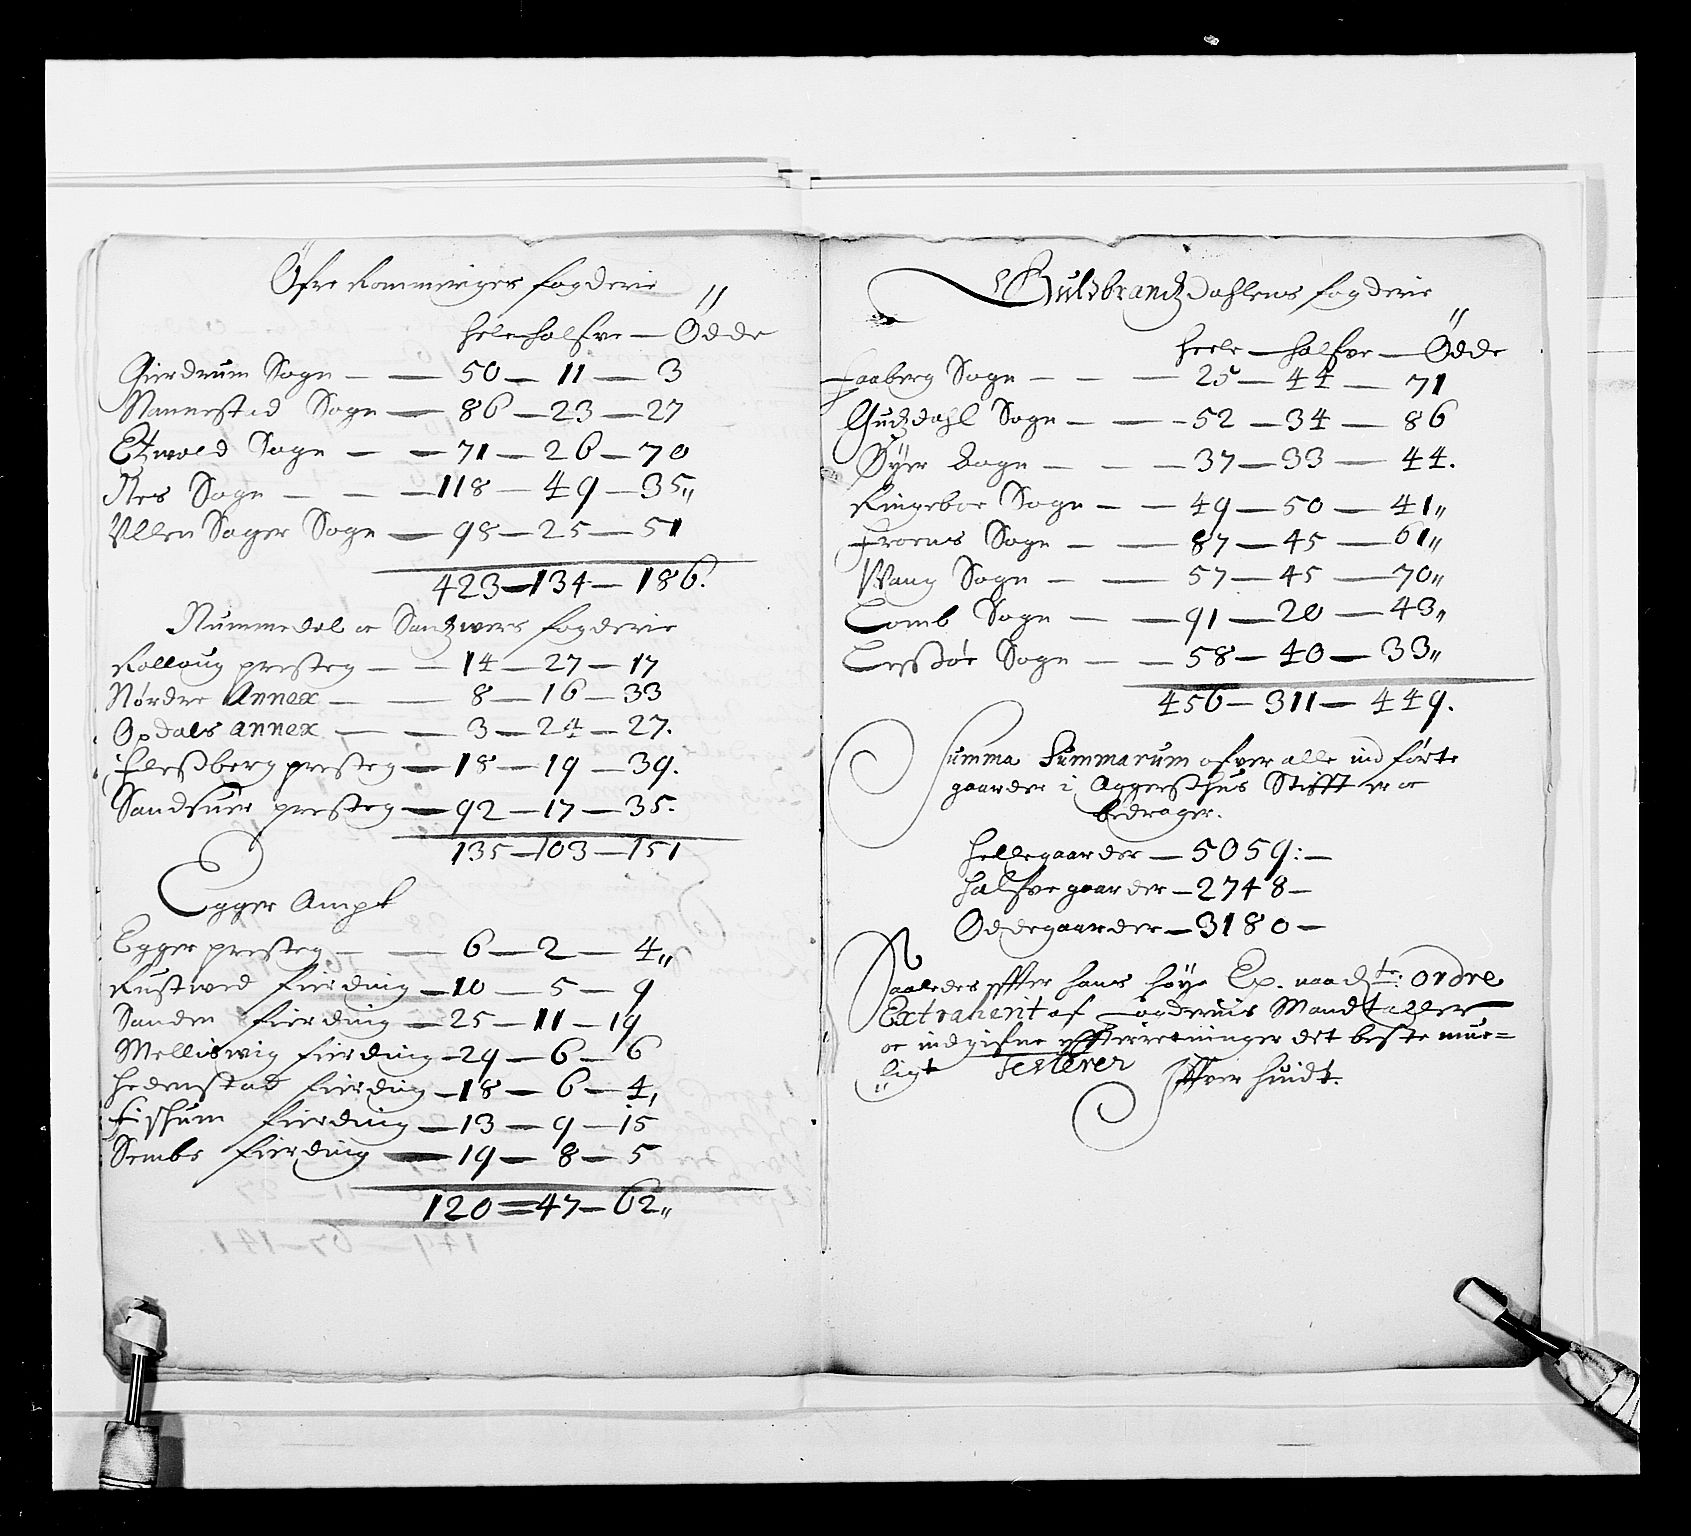 Öfre Rommeriges fogderie
hele halfve — Ödde
Gierdrum Sogn — — 50 — 11 — 3
Nannestad Sogn — 86 — 23 — 27
Etzwold Sogn — — 71 — 26 — 70
Nes Sogn — — — 118 — 49 — 35„
Ullen Sager Sogn — 98 — 25 — 51
423 — 134 — 186.
Nummedal oc Santzwers fogderie
Rolloug presteg — — 14 — 27 — 17
Nordre Annex — — 8 — 16 — 33
Opdals annex — — 3 — 24 — 27.
Flessberg presteg — 18 — 19 — 39.
Sandsuer presteg — 92 — 17 — 35.
135 — 103 — 151
Egger Ampt
Egger presteg — — 6 — 2 — 4„
Rustved fierding — 10 — 5 — 9
Sanden fierding — 25 — 11 — 19
Melliswig fierding — 29 — 6 — 6
Hedenstad fierding — 18 — 6 — 4,
Fishum fierding — 13 — 9 — 15
Sembs fierding — 19 — 8 — 5
120 = 47 — 62„
Guldbrantzdahlens fogderie
heele — halfve — Ödde
Faaberg Sogn — — — 25 — 44 — 71
Gudzdahl Sogn — — - 52 — 34 — 86
Öyer Sogn — — — 37 — 33 — 44.
Ringeboe Sogn — — 49 — 50 — 41„
Froens Sogn — — 87 — 45 — 61„
Waag Sogn — — 57 — 45 — 70„
Lomb Sogn — — 91 — 20 — 43„
Lessöe Sogn — — 58 — 40 — 33„
456 — 311 — 449.
Summa Summarum ofver alle ind förte
gaarder i Aggersshus Stifft er oc
bedrager.
Hellegaarder — 5059: —
Halfvegaarder — 2748 —
Ödegaarder — 3180 —
Saaledes effter hans høye Ex. naadtz: ordre
Extraherit af fogderiis Mandtaller
oc indgifne efterretninger det beste mue=
ligt Testerer
Iffver Huidt.